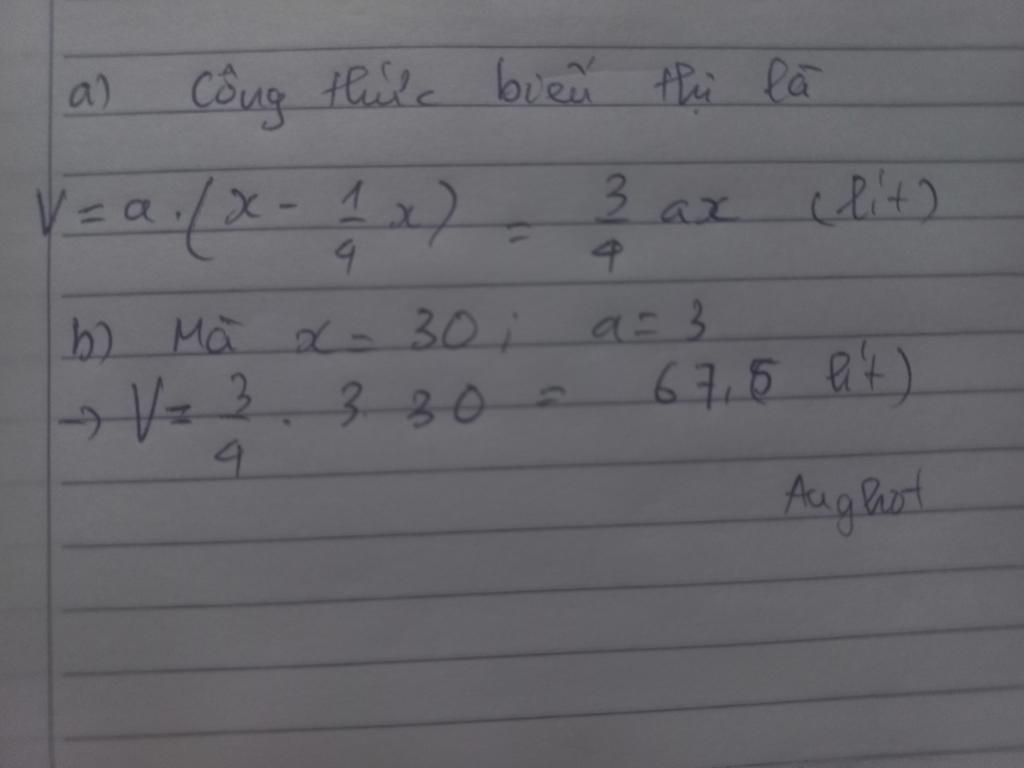 a) Công thức biểu thị là
V = a . (x - 1/4 x) = 3/4 ax (lít)
b) Mà x = 30 ; a = 3
→ V = 3/4 . 3 . 30 = 67,5 lít)